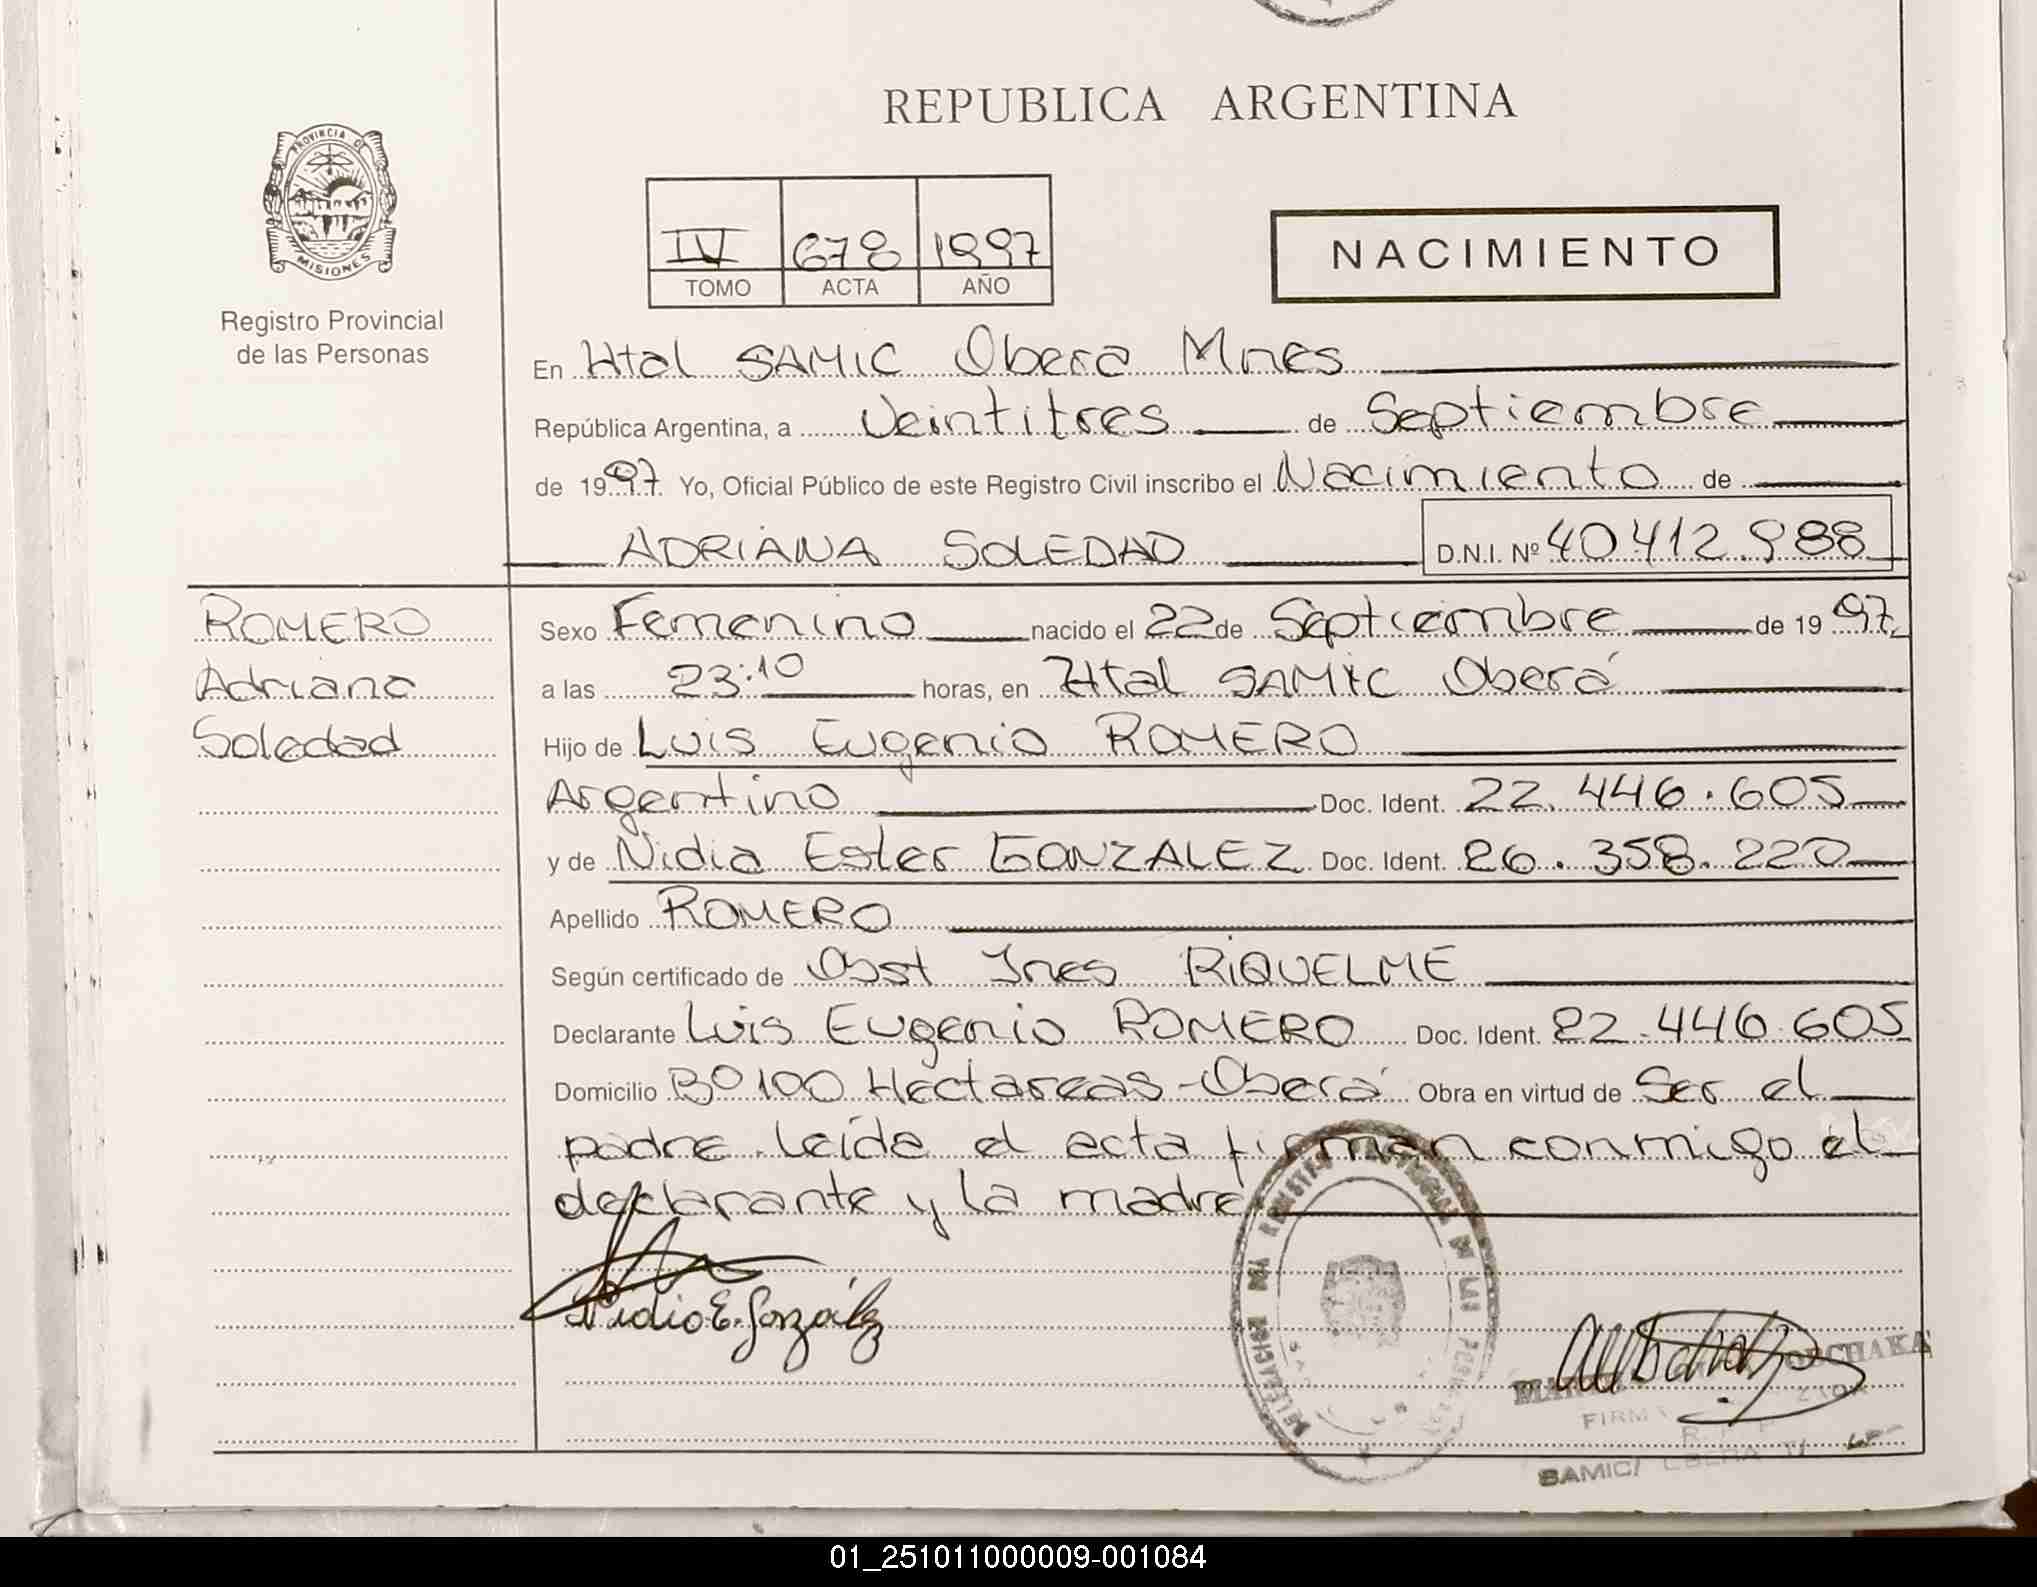 REPUBLICA ARGENTINA
PROVINCIA DE
MISIONES
Registro Provincial
de las Personas
IV 678 1997
TOMO ACTA AÑO
NACIMIENTO
En Htal SAMIC Obera Mnes
República Argentina, a Veintitres de Septiembre
de 1997. Yo, Oficial Público de este Registro Civil inscribo el Nacimiento de
ADRIANA SOLEDAD D.N.I. Nº 40412.988
ROMERO
Adriana
Soledad
Sexo Femenino nacido el 22 de Septiembre de 1997
a las 23:10 horas, en Htal SAMIC Oberá
Hijo de Luis Eugenio ROMERO
Argentino Doc. Ident. 22.446.605
y de Nidia Ester GONZALEZ Doc. Ident. 26.358.220
Apellido ROMERO
Según certificado de Obst Ines RIQUELME
Declarante Luis Eugenio ROMERO Doc. Ident. 22.446.605
Domicilio Bº 100 Hectareas - Oberá Obra en virtud de Ser el
padre. leída el acta firman conmigo el
declarante y la madre
Nidia E. González
SAMIC/
01_251011000009-001084